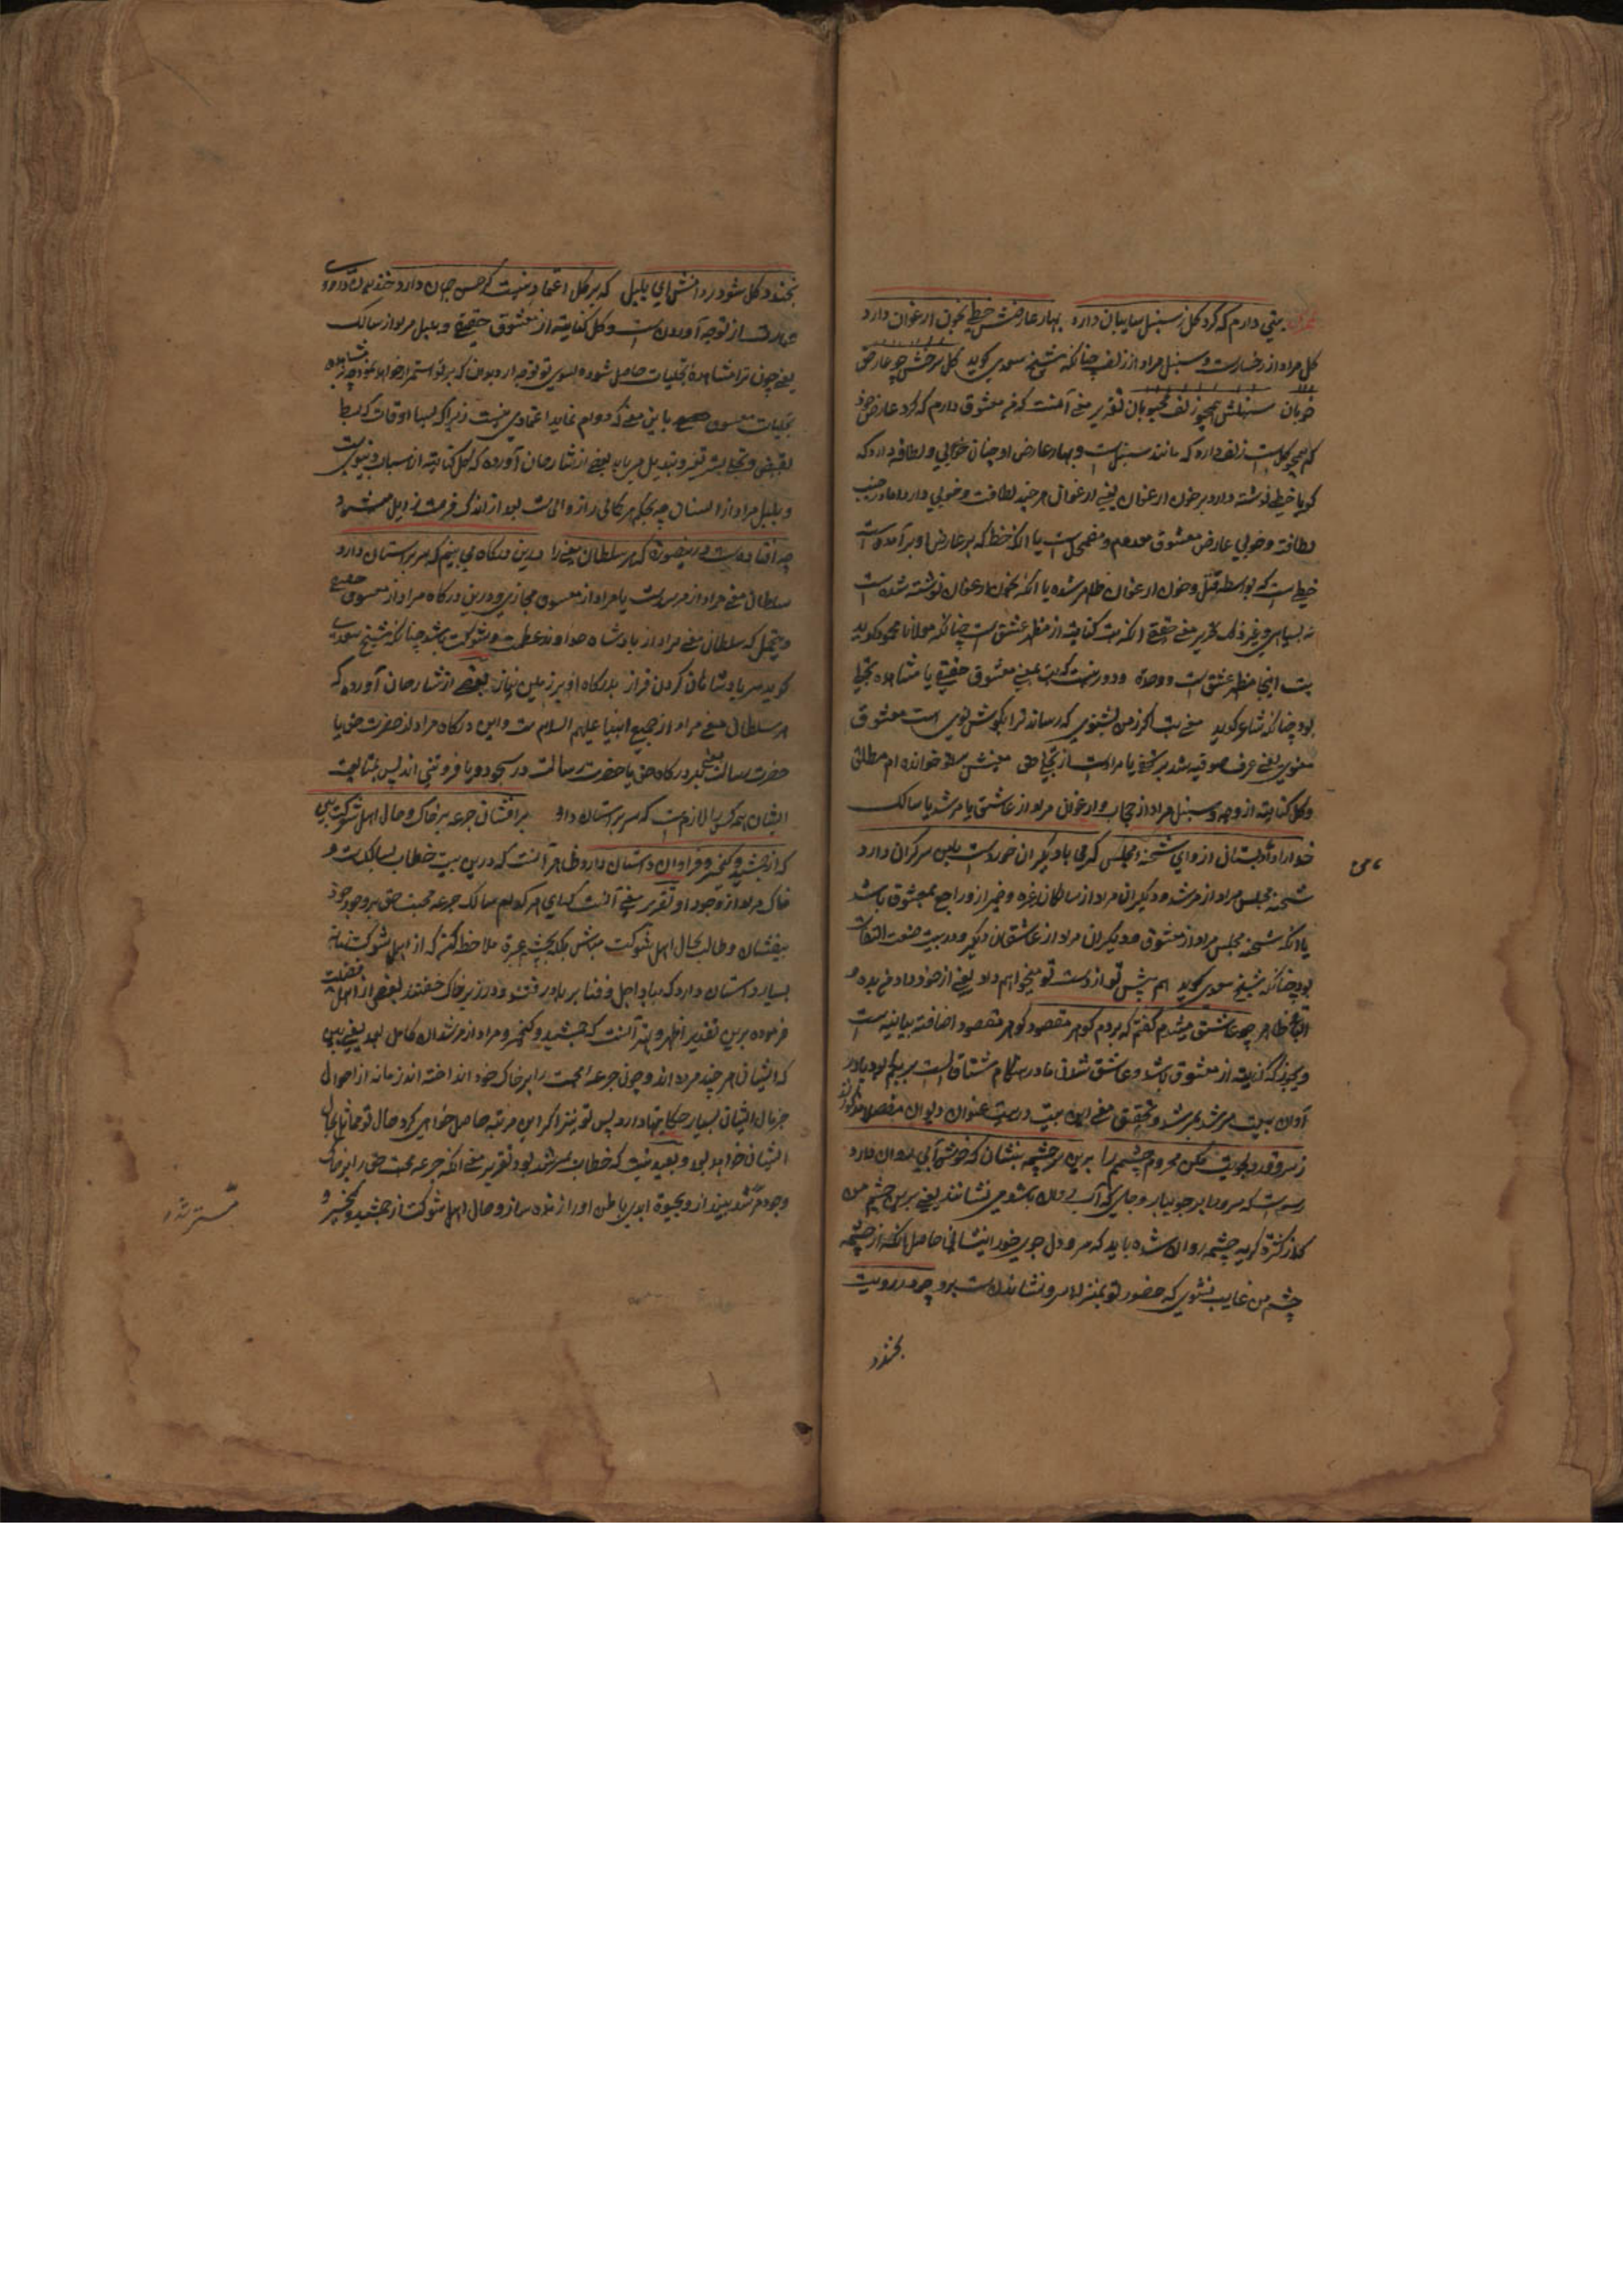 بتی دارم که کرد کل ز سنبل سایبان دارد بهار عارضش خطی بخون ارغوان دارد
کل مراد از رخسارست و سنبل مراد از زلف چنانکه شیخ سعدی کوید کل سرخش چو عارض
خوبان سنبلش همچو زلف محبوبان تقریر معنی آنست که معشوق دارم که کرد عارض خود
که همچو کلست زلف دارد که مانند سنبل است و بهار عارض او چنان خوبی و لطافة دارد که
کویا خطی نوشته دارد بر خون ارغوان یعنی ارغوان هر چند لطافت و خوبی دارد اما در جنب
لطافة و خوبی عارض معشوق معدوم و مضمحل است یا انکه خط که بر عارض او بر آمده است
خطی است که بواسطه قتل و خون ارغوان ظاهر شده یا انکه بخون ارغوان نوشته شده است
نه بسیاهی و غیر ذلک تقریر معنی حقیقی انکه بت کنایته از مظهر عشق است چنانکه مولانا محمود کوید
بت اینجا مظهر عشق است و وحدة و دور نیست که بت بمعنی معشوق حقیقی یا مشاهده تجلی
بود چنانکه شاعر کوید معنی بت اکر ز من بشنوی که رساند ترا بکوش نوی است معشوق
معنوی یعنی عرف صوفیه شد یا مرادست از تجلی حق معینش خوانده ام مطلق
و کل کنایته از وجه و سنبل مراد از حجاب و ارغوان مراد از عاشق یا مرشد یا سالک
خدا را داد من بستان ازو ای شحنه مجلس که می با دیکران خوردست با من سر کران دارد
شحنه مجلس مراد از مرشد و دیکران مراد از سالکان غره و ضمیر ازو راجع بمعشوق باشد
یا انکه شحنه مجلس مراد از معشوق و دیکران مراد از عاشقان دیکر و در بیت صنعت التفات
بود چنانکه شیخ سعدی کوید هم پیش تو از دست تو میخواهم داد یعنی از خود داد من بده و
ظاهر چو عاشق میشدم کفتم که بردم کوهر مقصود کوهر مقصود اضافته بیانیه است
و یجوز که کنایته از معشوق باشد و عاشق شدن
آوان بیعت مرشد بمرشد و تحقیق معنی این بیت در بیت عنوان دیوان مفصل
ز سرو قد دلجویت مکن محروم چشمم را برین سر چشمه بنشان که خوش آبی روان دارد
رسمست که سرو را بر جویبار و جایی که آب روان باشد می نشانند یعنی برین چشم من
که از کثرة کریه چشمه روان شده باید که سرو دل جوی خود را بنشانی حاصل انکه از چشمه
چشم من غایب نشوی که حضور تو بمنزله سرو نشاندنست برو چو در رویت
بخندد
بخندد کل مشو در دامش ای بلبل که بر کل اعتمادی نیست کر حسن جهان دارد خندیدن
عبارت از توجه آوردن است و کل کنایته از معشوق حقیقی و بلبل مراد از سالک
یعنی چون ترا مشاهدۀ تجلیات حاصل شود و بسوی تو توجه ارد بدان که بر تو استمرار خواهد
تجلیات معشوق باین معنی که دوام نماید اعتمادی نیست زیرا که بسا اوقات که بسط
بقبض و تجلی بستر تغیر و تبدیل می یابد بعضی از شارحان آورده که کل کنایته از اسباب دنیوی
و بلبل مراد از انسان چه بحکم هر کمالی را زوالی است بعد از اندک فرصت زایل میشود
چه افتاده است درینصورة که هر سلطان معنی را درین درکاه می بینم که سر بر آستان دارد
سلطان معنی مراد از مرشدست یا مراد از معشوق مجازی و درین درکاه مراد از معشوق حقیقی
و یحتمل که سلطان معنی مراد از بادشاه خداوند عظمت و شوکت باشد چنانکه شیخ سعدی
کوید سر بادشاهان کردن فراز بدرکاه او بر زمین نیاز بعضی از شارحان آورده که
هر سلطان معنی مراد از جمیع انبیا علیهم السلام است و این درکاه مراد از حضرت حق یا
حضرت رسالت یعنی بدرکاه حق یا حضرت رسالت در سجود و یا فروتنی اند پس بمتابعت
ایشان همه کس را لازمست که سر بر آستان دارد بر افشان جرعه بر خاک و حال اهل شوکت بین
که از جمشید و کیخسرو فراوان داستان دارد ظاهر آنست که درین بیت خطاب بسالکست و
خاک مراد از وجود او تقریر معنی آنست که ای سالک جرعه محبت حق بر وجود خود
بیفشان و طالب حال اهل شوکت مباش بلکه بچشم عبرة ملاحظه کن که از اهل شوکت زمانه
بسیار داستان دارد که بباد اجل و فنا بر باد رفتند و در زیر خاک خفتند بعضی از اهل فضیلت
فرموده برین تقدیر اظهر و بهتر آنست که جمشید و کیخسرو مراد از مرشدان کامل بود یعنی ببین
که ایشان هر چند مرده اند و چون جرعه محبت را بر خاک خود انداخته اند زمانه از احوال
حال ایشان بسیار حکایتها دارد پس تو نیز اکر این مرتبه حاصل خواهی کرد حال تو همانا بحال
ایشان خواهد بود و بعید نیست که خطاب بمرشد بود تقریر معنی انکه جرعه محبت حق را بر خاک
وجود مسترشد بینداز و بحیوة ابدی باطن او را زنده ساز و حال اهل شوکت از جمشید و کیخسرو
مسترشد